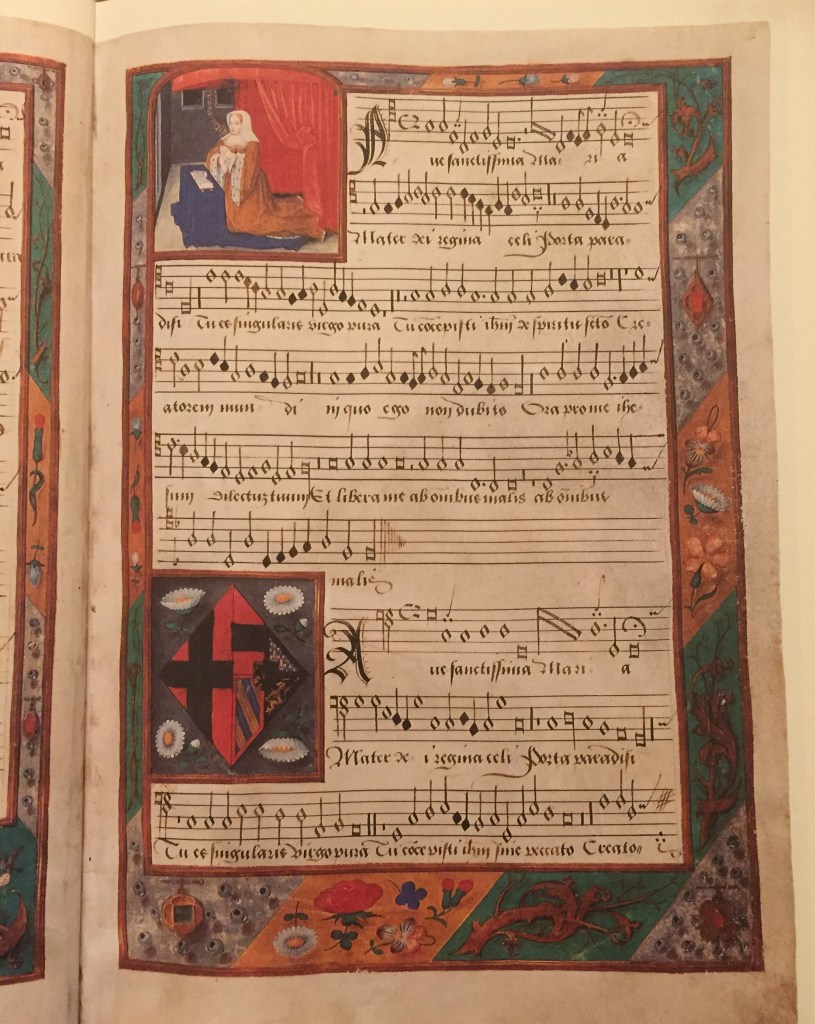 Aue sanctissima Ma- ri a
Mater dei regina celi Porta para-
disi Tu es singularis virgo pura Tu cōcepisti ihm̄ de spiritu scto Cre-
atorem mun di in quo ego non dubito Ora pro me ihe-
sum dilectuz tuum Et libera me ab omībus malis ab omībus
malis
Aue sanctissima Mari- a
Mater de- i regina celi Porta paradisi
Tu es singularis virgo pura Tu cōcepisti ihm̄ sine peccato Creato-